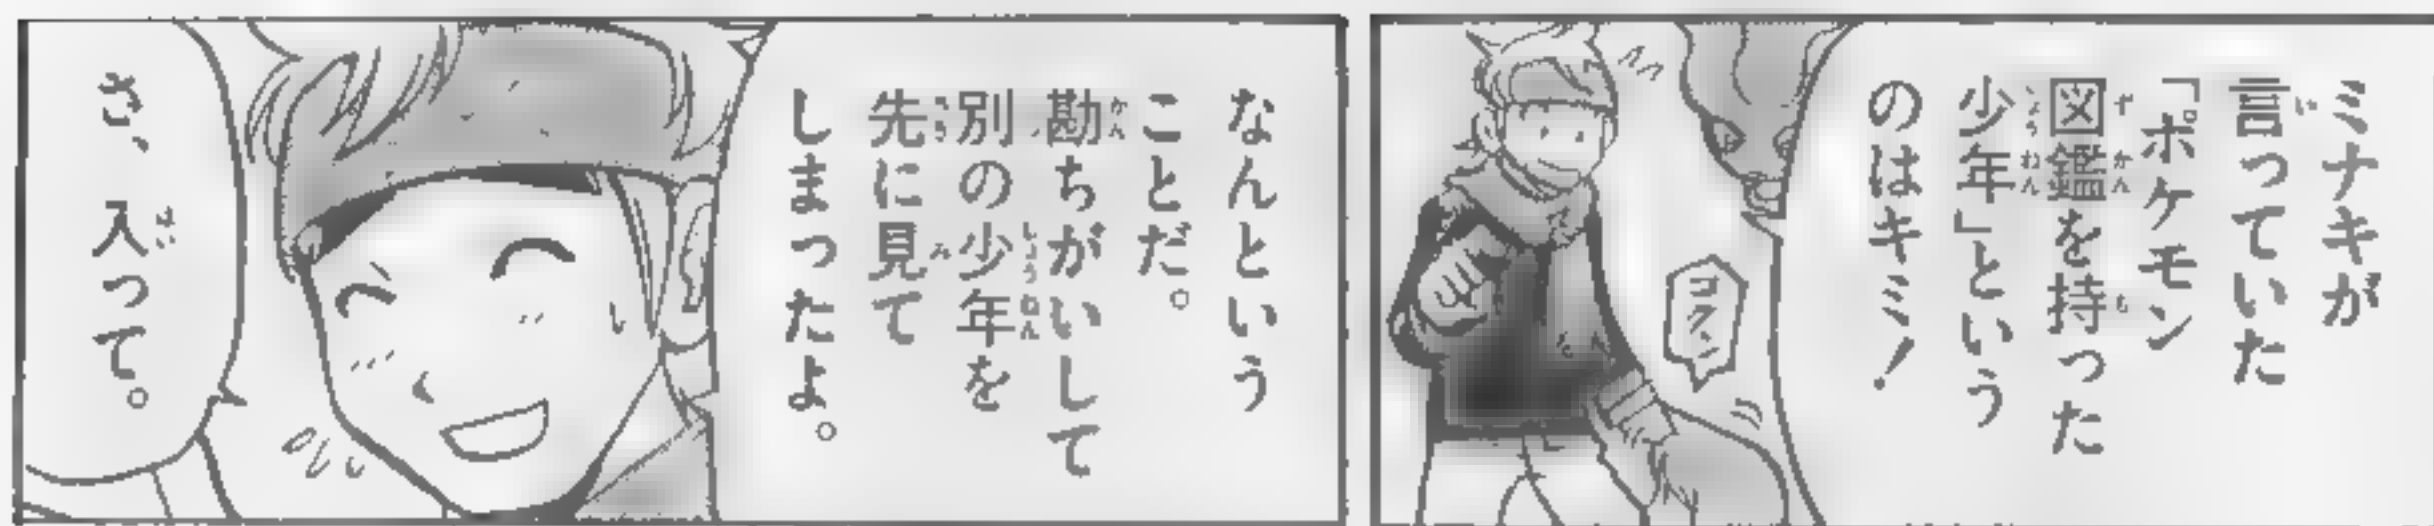 ミナキが
言っていた
「ポケモン
図鑑を持った
少年」という
のはキミ！
コクン
なんという
ことだ。
勘ちがいして
別の少年を
先に見て
しまったよ。
さ、入って。